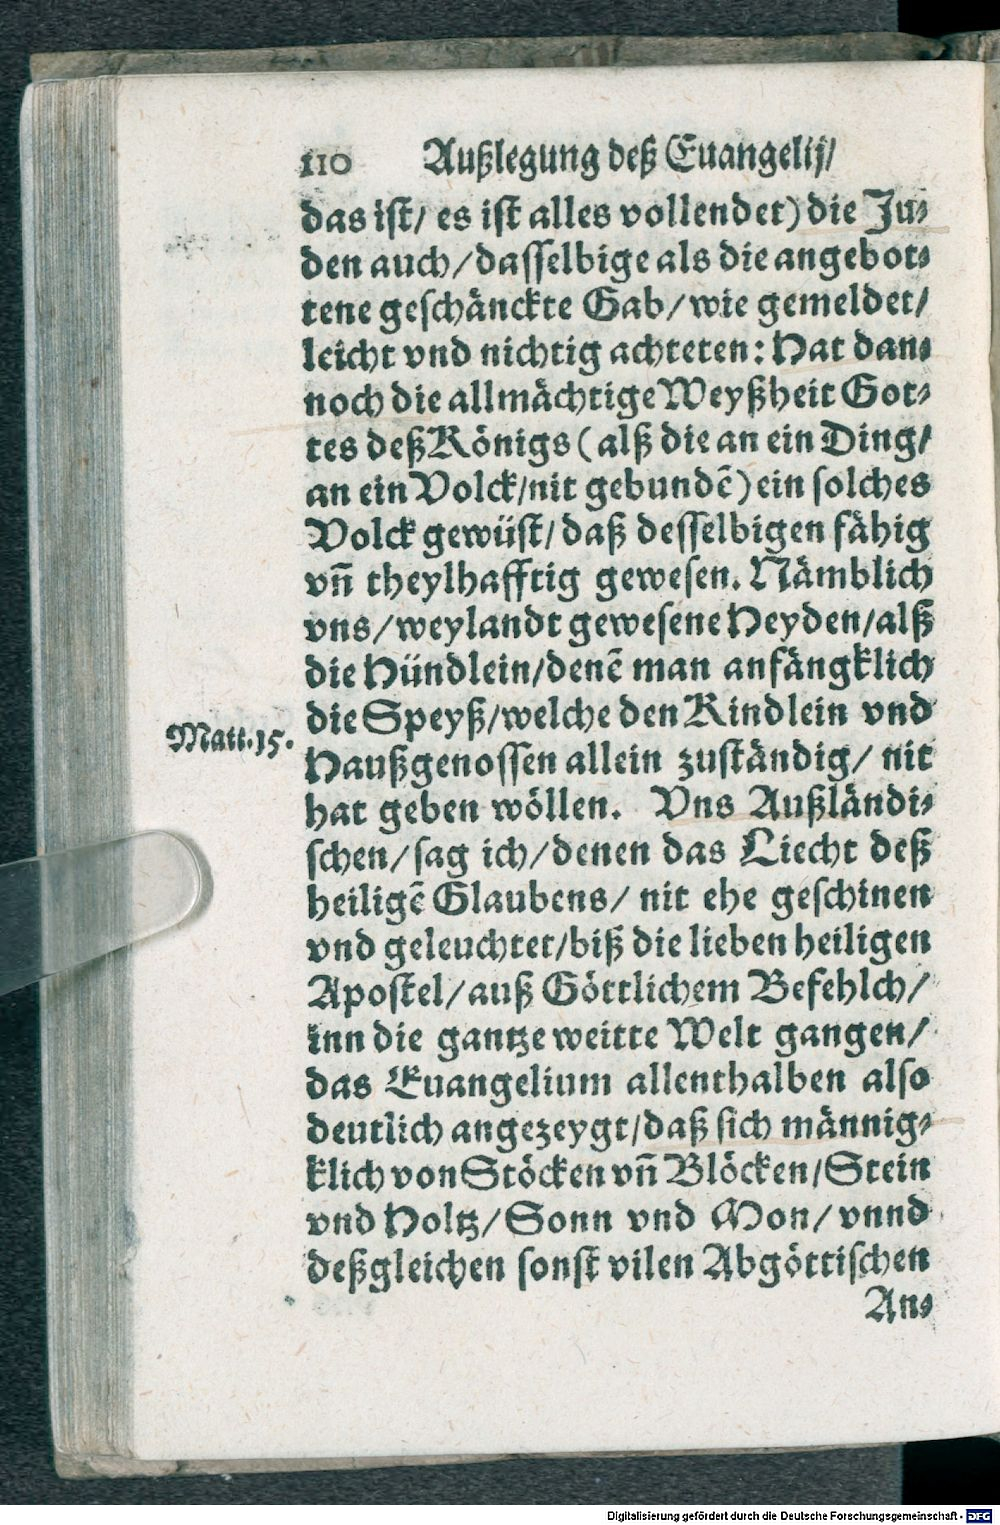 110 Außlegung deß Euangelij/
das ist/ es ist alles vollendet) die Ju⸗
den auch/ dasselbige als die angebot⸗
tene geschänckte Gab/ wie gemeldet/
leicht vnd nichtig achteten: Hat dan⸗
noch die allmächtige Weyßheit Got⸗
tes deß Königs (alß die an ein Ding/
an ein Volck/ nit gebundẽ) ein solches
Volck gewüst/ daß desselbigen fähig
vñ theylhafftig gewesen. Nämblich
vns/ weylandt gewesene Heyden/ alß
die Hündlein/ denẽ man anfängklich
die Speyß/ welche den Kindlein vnd
Matt.15.
Haußgenossen allein zuständig/ nit
hat geben wöllen. Vns Außländi⸗
schen/ sag ich/ denen das Liecht deß
heiligẽ Glaubens/ nit ehe geschinen
vnd geleuchtet/ biß die lieben heiligen
Apostel/ auß Göttlichem Befehlch/
inn die gantze weitte Welt gangen/
das Euangelium allenthalben also
deutlich angezeygt/ daß sich männig⸗
klich von Stöcken vñ Blöcken/ Stein
vnd Holtz/ Sonn vnd Mon/ vnnd
deßgleichen sonst vilen Abgöttischen
An⸗
Digitalisierung gefördert durch die Deutsche Forschungsgemeinschaft - DFG